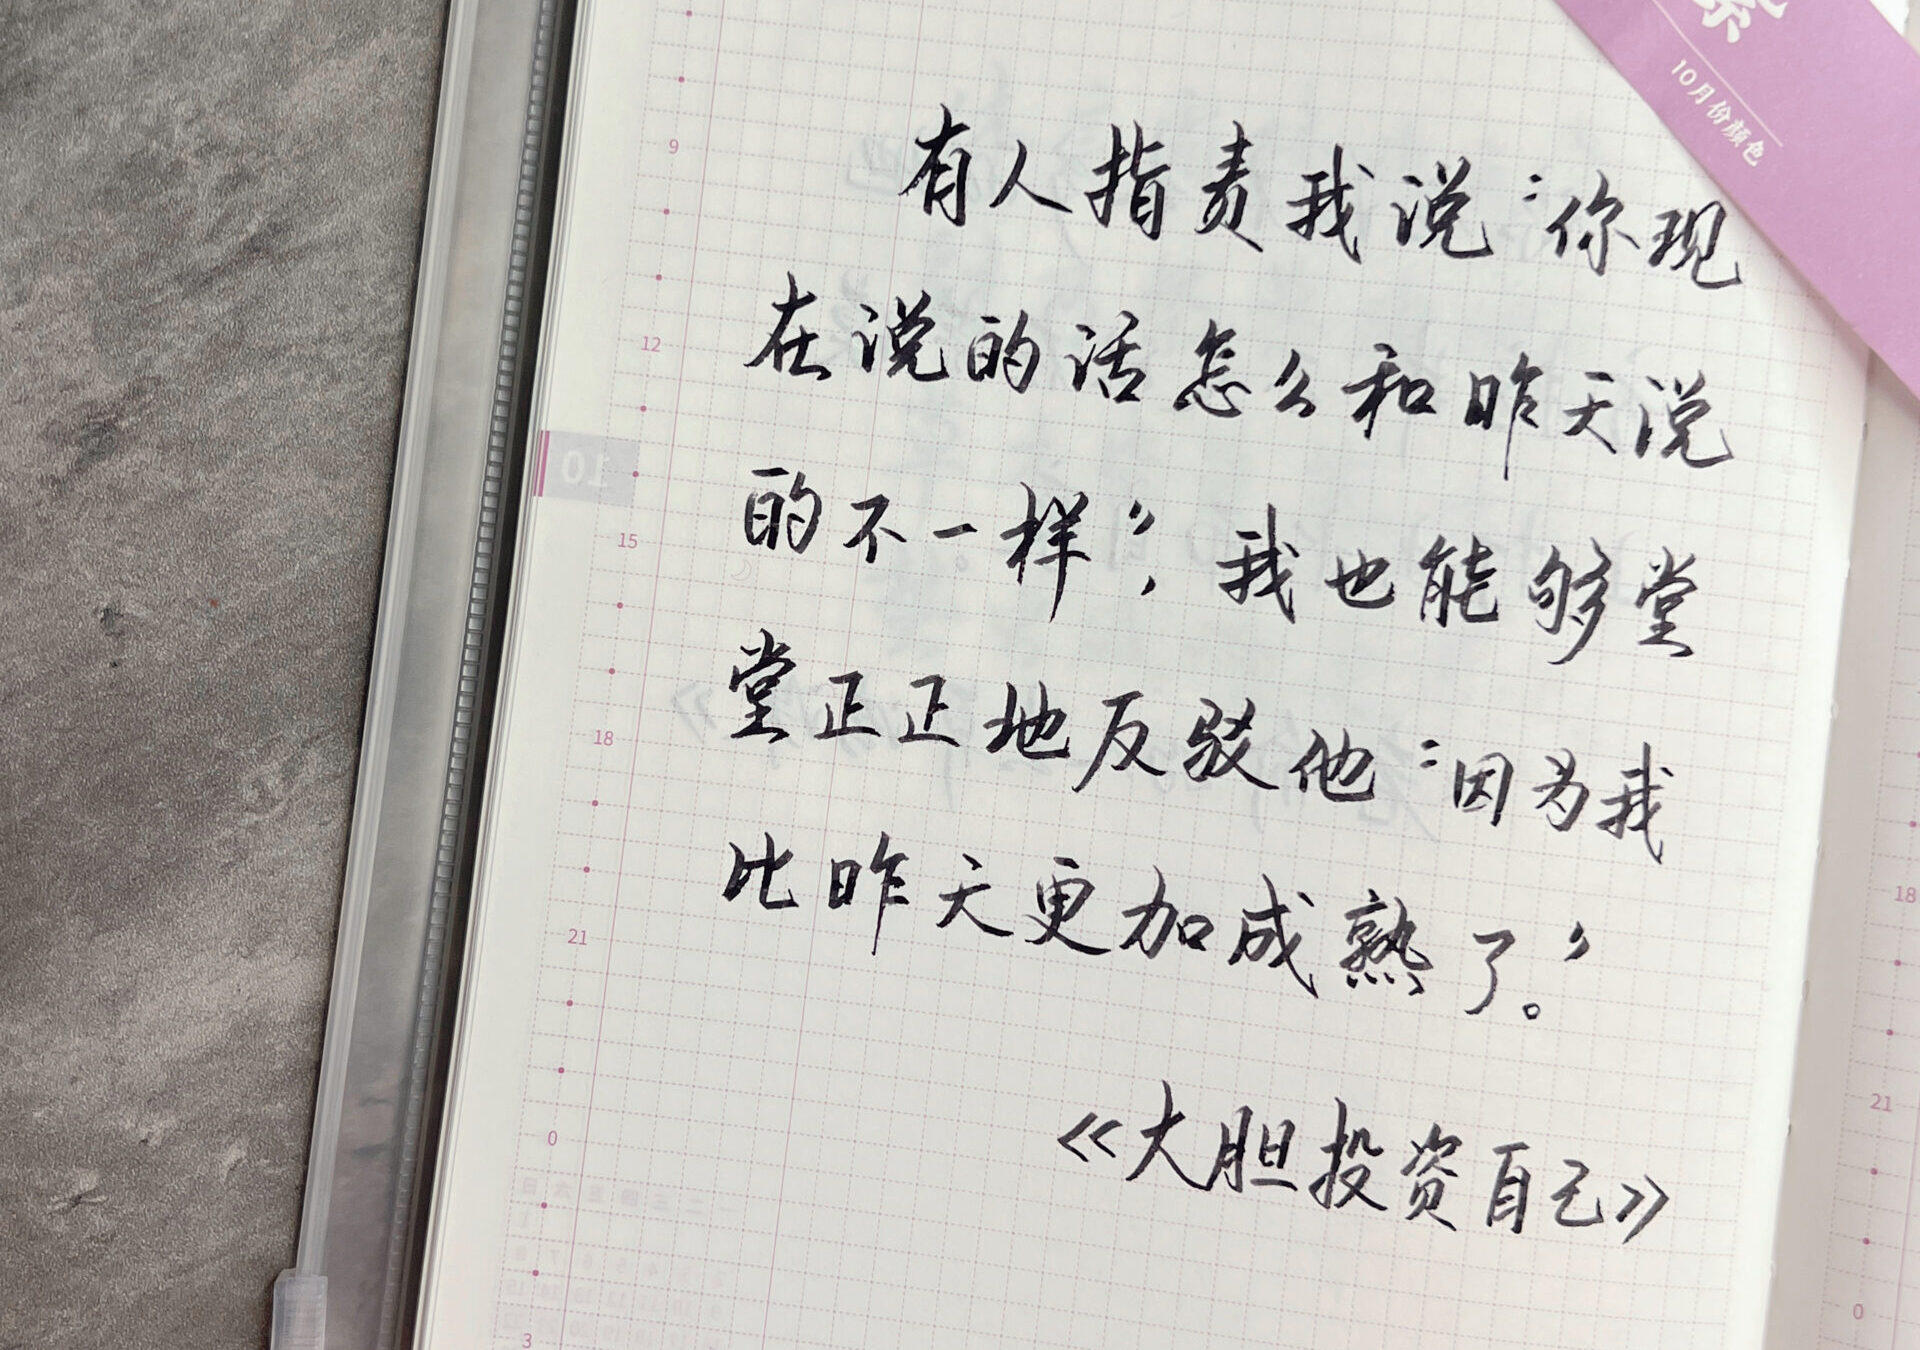 紫
10月份颜色
有人指责我说“你现
在说的话怎么和昨天说
的不一样”，我也能够堂
堂正正地反驳他“因为我
比昨天更加成熟了。”
《大胆投资自己》
9
12
10
15
18
21
0
3
18
21
0